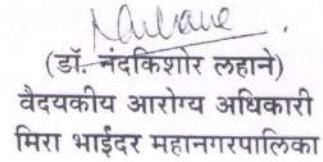 (डॉ. नंदकिशोर लहाने)
वैदयकीय आरोग्य अधिकारी
मिरा भाईंदर महानगरपालिका